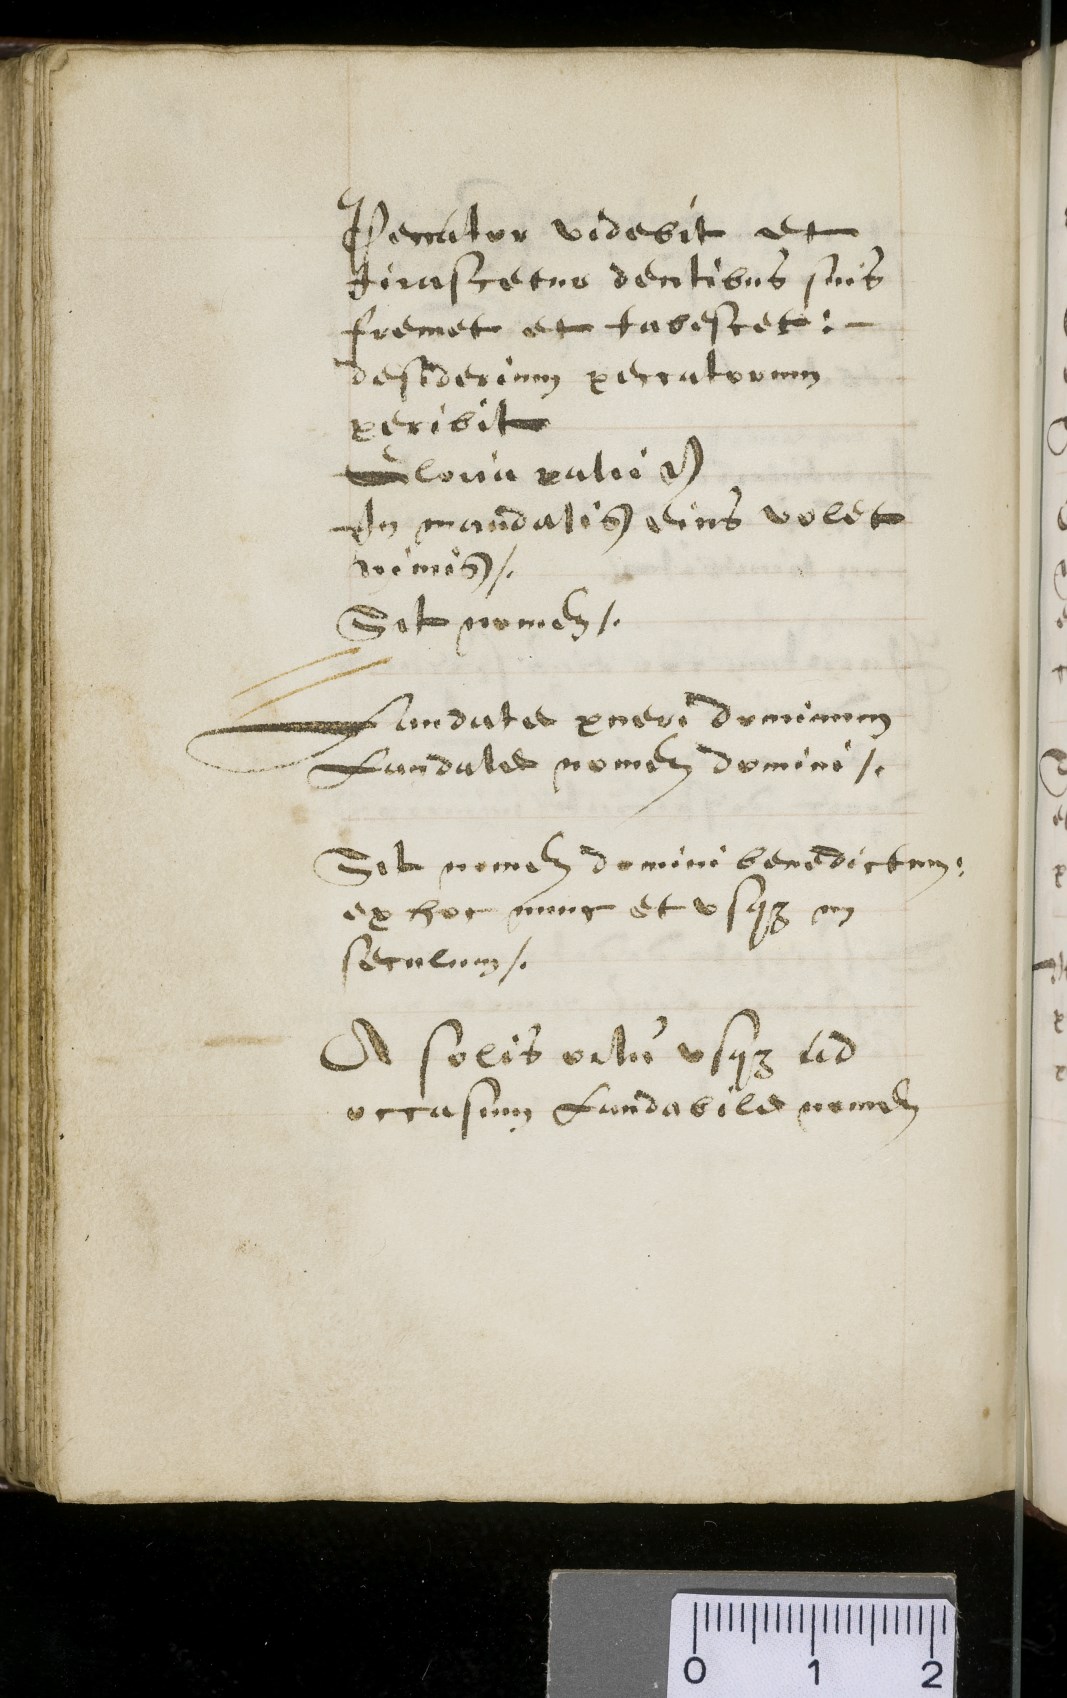 Peccator videbit et
irascetur dentibus suis
fremet et tabescet: -
desiderium peccatorum
peribit
Gloria patri
In mandatis eius volet
nimis/.
Sit nomen/.
Laudate pueri dominum
Laudate nomen domini/.
Sit nomen domini benedictum:
ex hoc nunc et usqꝫ in
seculum/.
A solis ortu usqꝫ ad
occasum Laudabile nomen
0 1 2